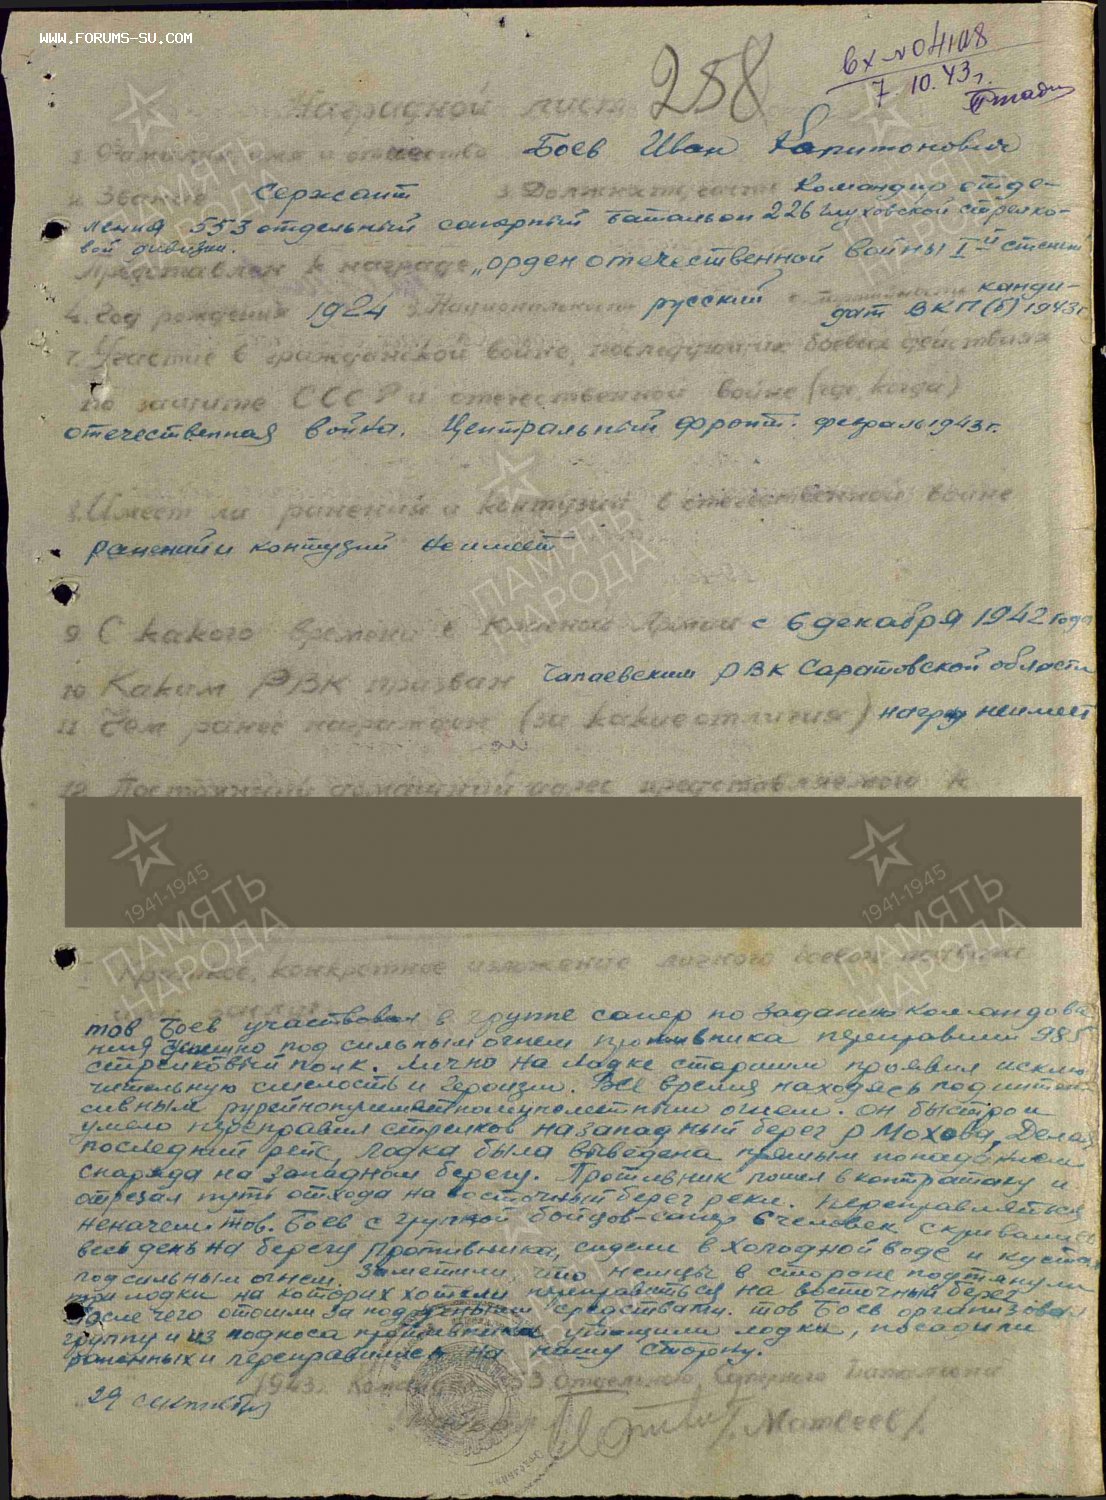 WWW.FORUMS-SU.COM
258
вх-№ 04108
7 10.43 г.
Наградной лист
1. Фамилия, имя и отчество Боев Иван Капитонович
2. Звание Сержант 3. Должность, часть Командир отде-
ления 553 отдельный саперный баталион 226 Глуховской стрелко-
вой дивизии.
Представлен к награде „орден отечественной войны I й степени
канди-
4. Год рождения 1924 5. Национальность русский 6. партийность дат ВКП(б) 1943 г
7. Участие в гражданской войне, последующих боевых действиях
по защите СССР и отечественной войне (где, когда)
отечественная война. Центральный фронт. февраль 1943 г.
8. Имеет ли ранения и контузии в отечественной войне
ранений и контузий неимеет
9 С какого времени в Красной Армии с 6 декабря 1942 года
10 Каким РВК призван Чапаевским РВК Саратовской области
11 Чем ранее награжден (за какие отличия) нагрд неимеет
12 Постоянный домашний адрес представляемого к
1941-1945
ПАМЯТЬ
НАРОДА
I Краткое, конкретное изложение личного боевого подвига
или заслуг
тов Боев участвовал в группе сапер по заданию командова
ния под сильным огнем противника переправлял 985
стрелковый полк. Лично на лодке старшим проявил исклю
чительную смелость и героизм. Всё время находясь под интен
сивным огнем. он быстро и
умело переправил стрелков на западный берег р Мохова, Делая
последний рейс, лодка была выведена прямым попаданием
снаряда на западном берегу. Противник пошел в контратаку и
отрезал путь отхода на восточный берег реки. переправляться
неначем. тов. Боев с группой бойцов-сапер 6 человек скрывались
весь день на берегу противника, сидели в холодной воде и кустах
под сильным огнем. Заметили что немцы в стороне подтянули
три лодки на которых хотели переправиться на восточный берег
после чего отошли за подручными средствами. тов Боев организовал
группу и из подноса противника утащили лодки, посадили
раненных и переправились на нашу сторону.
29 сентября 1943 г. Командир 553 Отдельного Саперного Баталиона
/Матвеев/